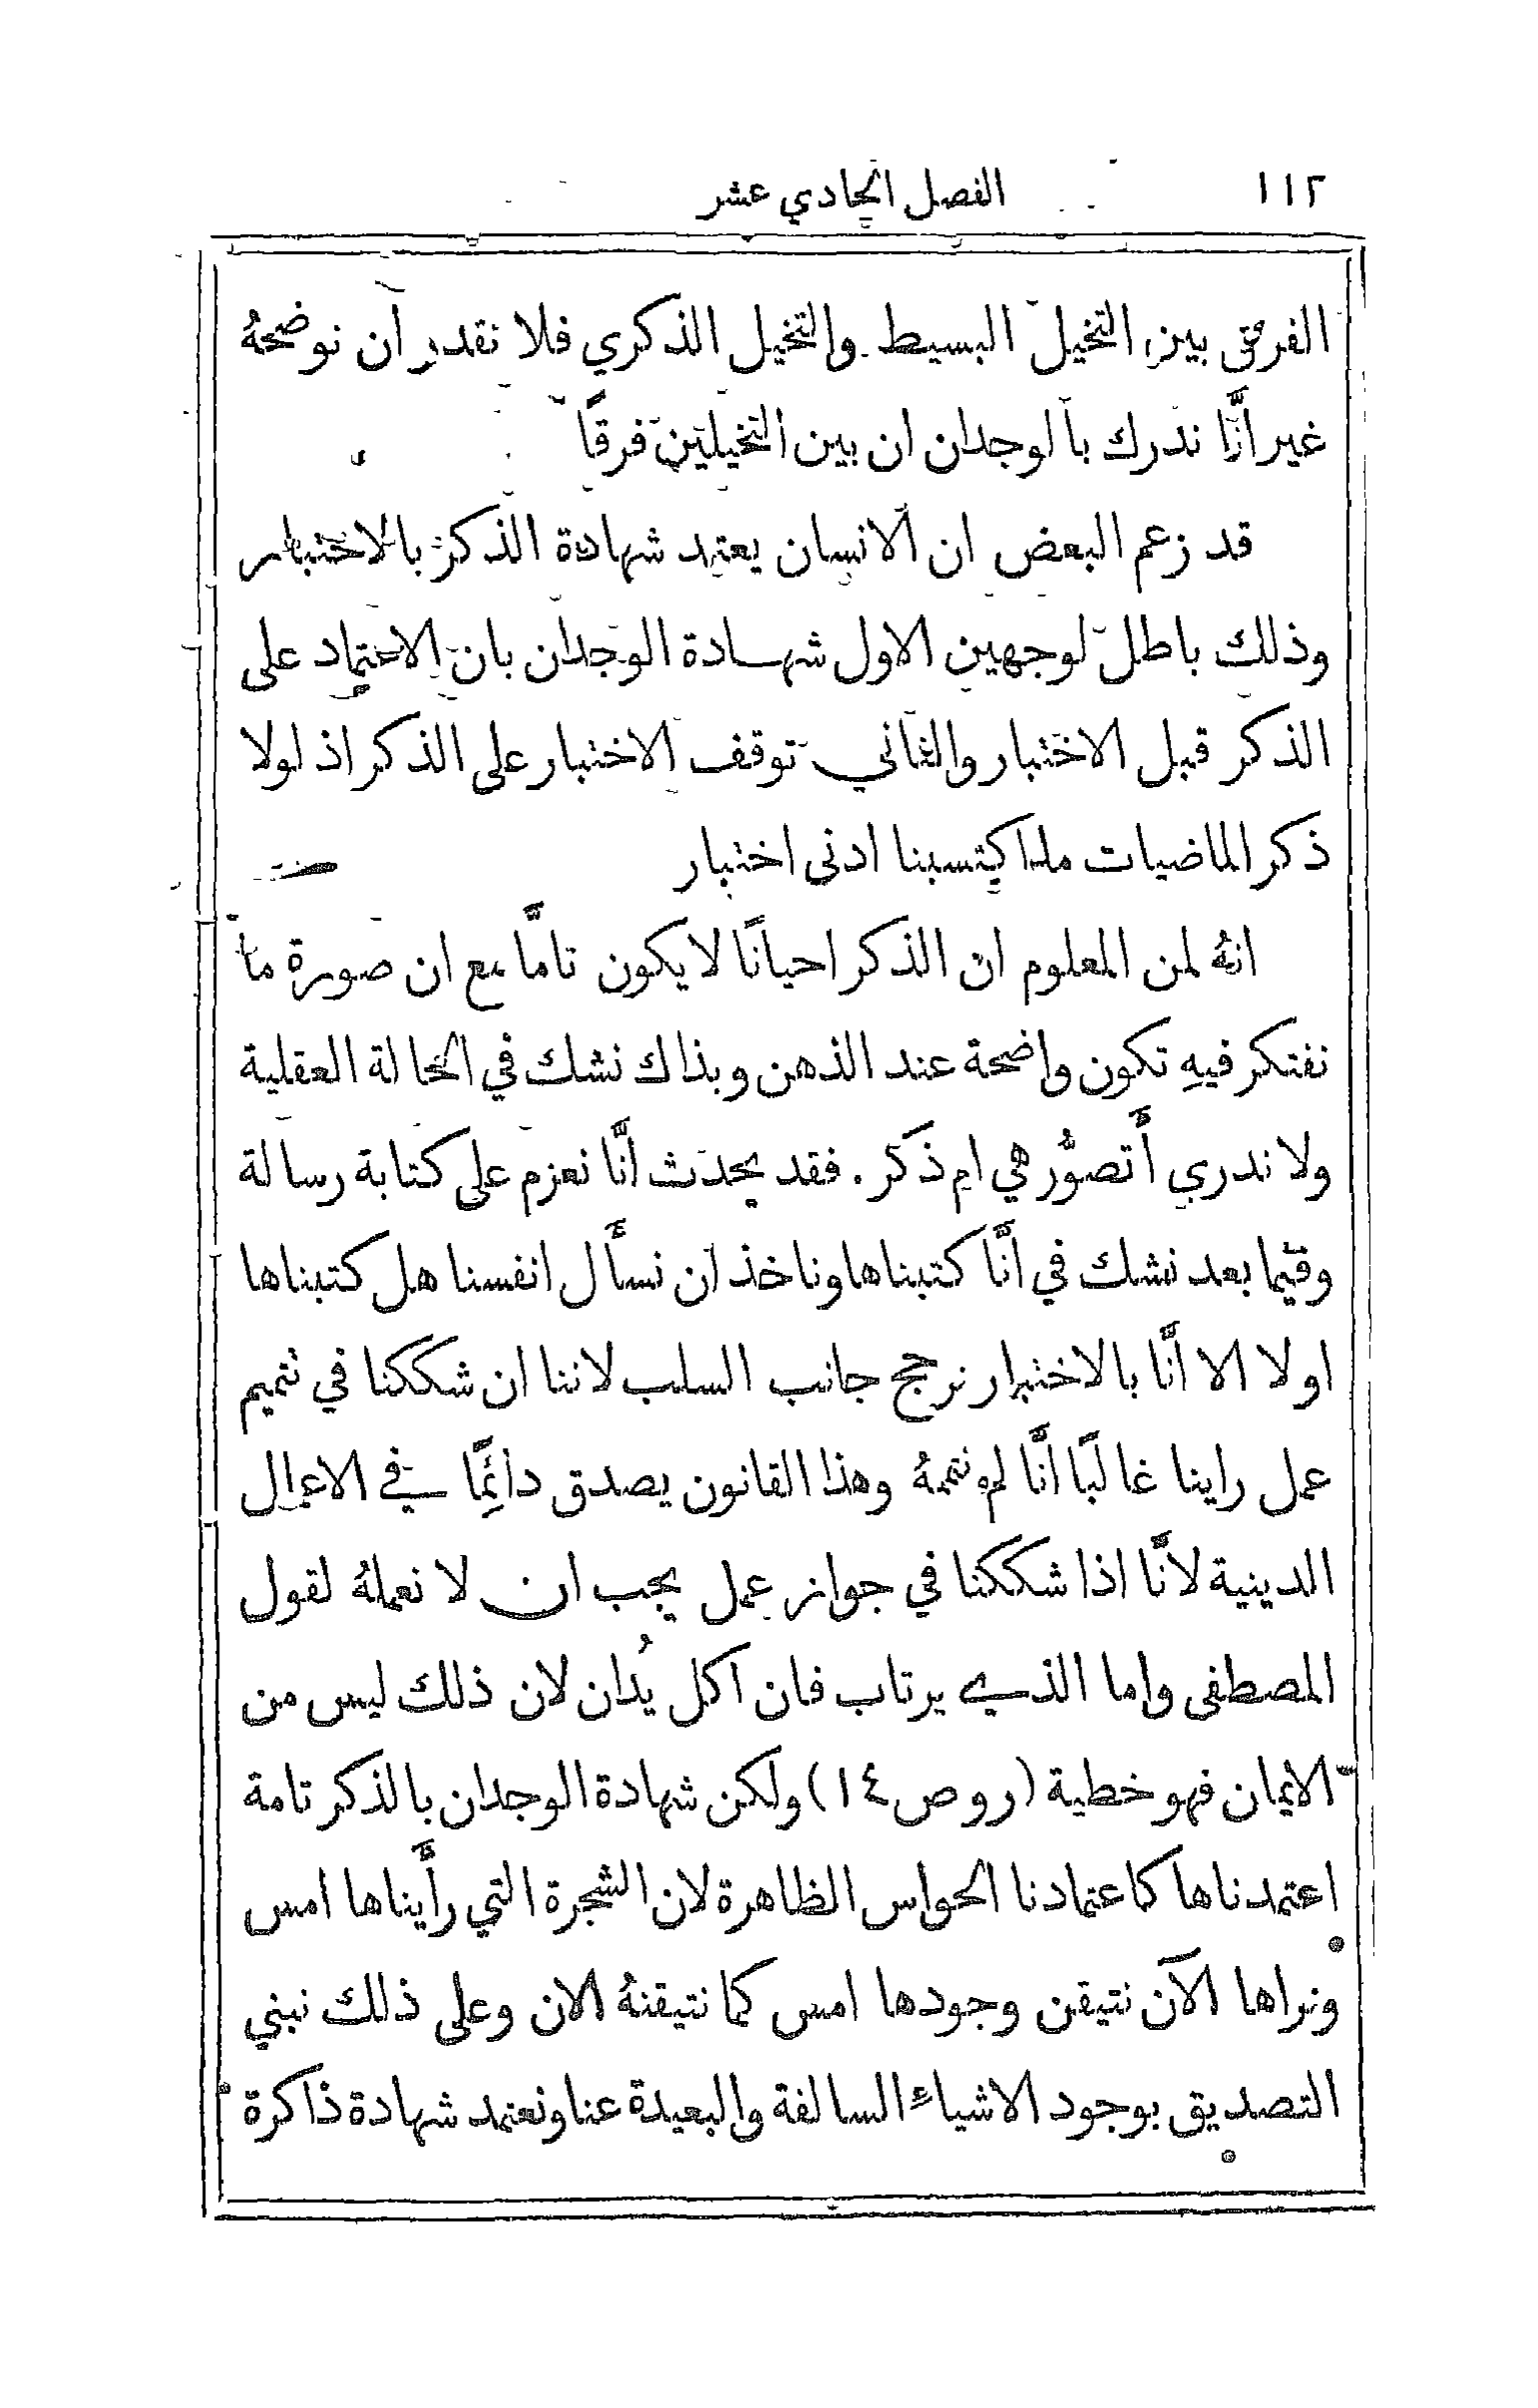 ١١٢ الفصل الحادي عشر
الفرق بين التخيل البسيط والتخيل الذكري فلا نقدر أن نوضحهُ
غير أنَّا ندرك بالوجدان ان بين التخيلين فرقًا
قد زعم البعض ان الانسان يعتمد شهادة الذكر بالاختبار
وذلك باطل لوجهين الاول شهادة الوجدان بان الاعتماد على
الذكر قبل الاختبار والثاني توقف الاختبار على الذكر اذ لولا
ذكر الماضيات ما اكتسبنا ادنى اختبار
انهُ لمن المعلوم ان الذكر احيانًا لا يكون تامًّا مع ان صورة ما
نفتكر فيهِ تكون واضحة عند الذهن وبذاك نشك في الحالة العقلية
ولا ندري أَتصوُّر هي ام ذكر . فقد يحدث أنَّا نعزم على كتابة رسالة
وفيما بعد نشك في أنَّا كتبناها وناخذ ان نسأَل انفسنا هل كتبناها
او لا الا أنَّا بالاختبار نرجح جانب السلب لاننا ان شككنا في تتميم
عمل راينا غالبًا أنَّا لم نتممهُ وهذا القانون يصدق دائمًا في الاعمال
الدينية لانَّا اذا شككنا في جواز عمل يجب ان لا نعملهُ لقول
المصطفى واما الذي يرتاب فان اكل يُدان لان ذلك ليس من
الايمان فهو خطية (رو ص ١٤) ولكن شهادة الوجدان بالذكر تامة
اعتمدناها كاعتمادنا الحواس الظاهرة لان الشجرة التي رأَيناها امس
ونراها الآن نتيقن وجودها امس كما نتيقنهُ الان وعلى ذلك نبني
التصديق بوجود الاشياء السالفة والبعيدة عنا ونعتمد شهادة ذاكرة